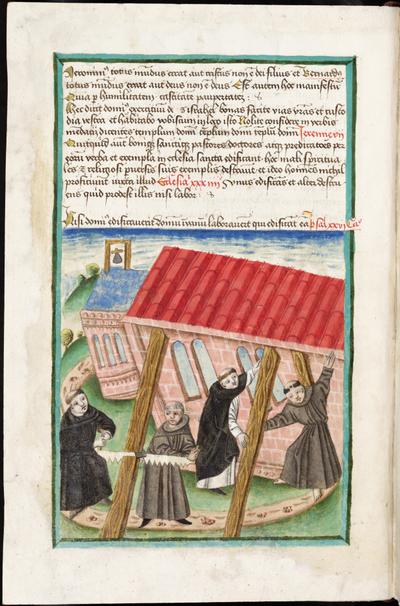 Jeronim9 totus mundus errat aut cristus non ē dei filius et Bernardus
totus mundus errat aut deus non ē deus Est autem hec manifestū
Quia p humilitatem castitatē paupertatē :
Hec dicit domin9 exercituū deus israhel bonas facite vias vrās et studia
vestra et habitabo vobiscum in loco isto Nolite confidere in verbis
mendacii dicentes templum domī templum domī templū domī Jeremie vii
Quitquid autē boni sanctiqz pastores doctores atqz predicatores per
verba et exempla in eclesia sancta edificant hec mali spirituales
et religiosi puersis suis exemplis destruūt et ideo hominēs nichil
proficiunt iuxta illud Eclesia xxxiiii Unus edificans et alter destruens
quid prodest illis nisi labor :
Nisi domin9 edificauerit domū in vanū laborauerūt qui edificāt eā psal xxvi Ca